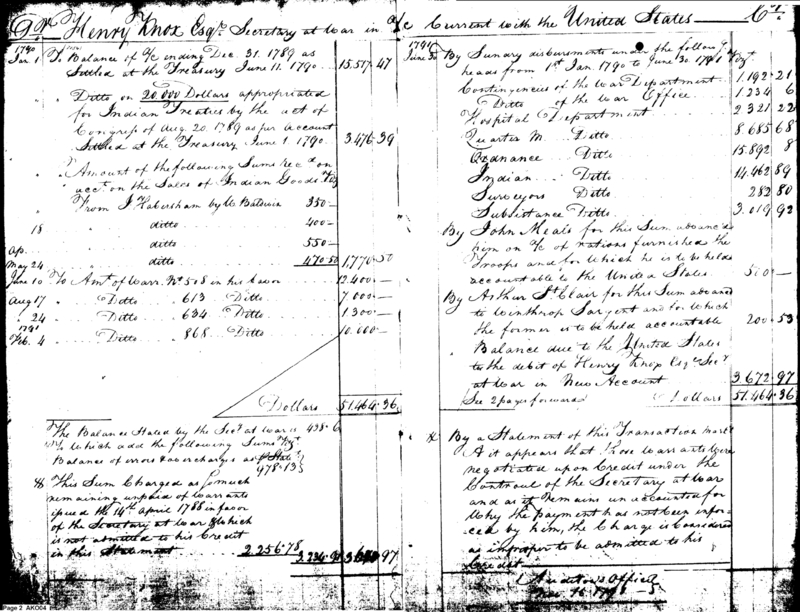 Dr. Henry Knox Esqr. Secretary at War in a/c Current with the United States Cr.
1790
Jan 1 To Balance of a/c ending Dec. 31. 1789 as
Settled at the Treasury June 11. 1790 15.517.47
Ditto on 20.000 Dollars appropriated
for Indian Treaties by the act of
Congress of Aug. 20. 1789 as per account
Settled at the Treasury June 1. 1790 3.476.39
Amount of the following Sums recd on
acct. on the Sales of Indian Goods Vizt
From J Habersham by Mr Baldwin 350—
18 ditto 400—
Ap. ditto 550—
May 24 ditto 470.50 1.770.50
June 10 To Amt of Warrt. No. 508 in his favor 12.400.—
Aug 17 Ditto 613 Ditto 7.000.—
24 Ditto 634 Ditto 1.300.—
1791
Feb. 4 Ditto 868 Ditto 10.000.—
Dollars 51.464.36
The Balance Stated by the Secy at War is 438.6
to which add the following Sums Vizt
Balance of errors & overcharges as
478.13
This Sum Charged as so much
remaining unpaid of Warrants
issued the 14th April 1788 in favor
of the Secretary at War & which
is not admitted to his Credit
in this Statement 2.256.78
1791
June 30 By Sundry disbursements under the follow.g
heads from 1st Jan. 1790 to June 30. 1791 Vizt
Contingencies of the War Department 1.192.21
Ditto of the War Office 1.234 6
Hospital Department 2.321 22
Quarter M. Ditto 8.685 68
Ordnance Ditto 15.892 8
Indian Ditto 14.462 89
Surveyors Ditto 282 80
Subsistance Ditto 3.019 92
By John Meals for this Sum advanced
him on a/c of rations furnished the
Troops and for which he is to be held
accountable to the United States 500—
By Arthur St. Clair for this Sum advanced
to Winthrop Sargent and for which
the former is to be held accountable 200.53
Balance due to the United States
to the debit of Henry Knox Esqr. Secy
at War in New Account 3.672.97
See 2 pages forward Dollars 51.464.36
By a Statement of this Transaction mark'd
A it appears that those Warrants were
negotiated upon Credit under the
Controul of the Secretary at War
and as it remains unaccounted for
Why the payment has not been enfor-
ced by him, the Charge is considered
as improper to be admitted to his
Credit
Auditor's Office
Page 2 AK004